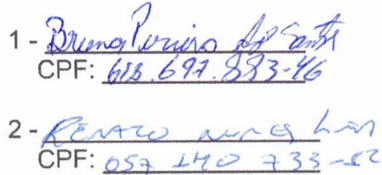 1 - Bruna Pereira dos Santos
CPF: 618.697.883-46
2 - Renato Nunes Lima
CPF: 057 140 733-82